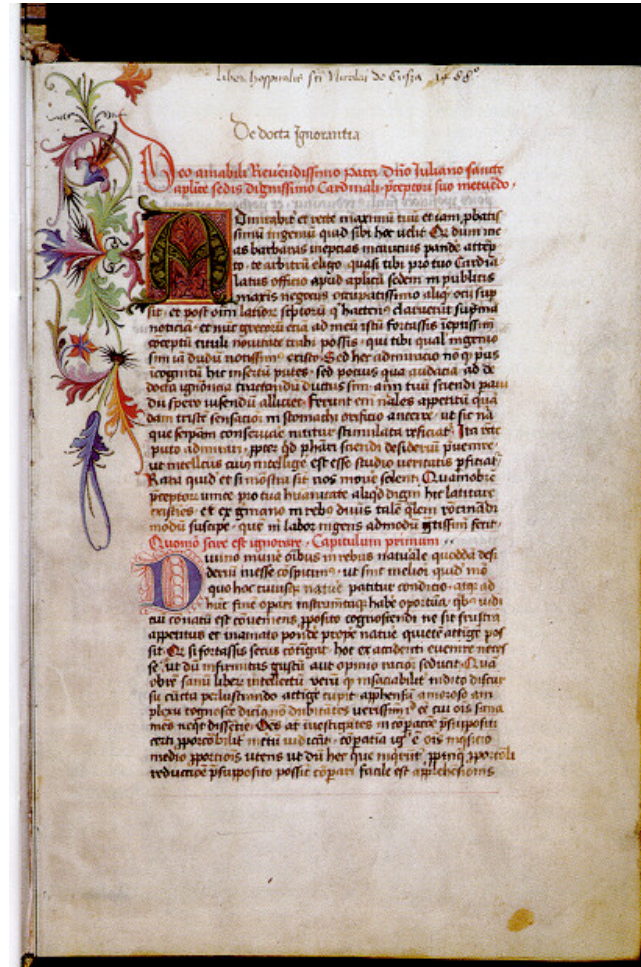 liber hospitalis sci Nicolai de Cusza 1488°
De docta Ignorantia
Deo amabili Reuerendissimo patri Dño Iuliano sancte
aplice sedis dignissimo Cardinali preceptori suo metuēdo
Admirabit et recte maximū tuū et iam pbatis
simū ingeniū quid sibi hoc velit Qz dum me
as barbaras ineptias incautius pandē attēp
to te arbitrū eligo quasi tibi pro tuo Cardīa
latus officio apud aplicā sedem in publicis
maxis negocijs occupatissimo aliqd ocii sup
sit et post oīm latior sciptorū q hacten9 claruerūt supma
noticiā et nūc grecorū eciā ad meū istū fortassis ieptissim
cōceptū tituli nouitate trahi possis qui tibi qual ingenio
sim iā dudū notissim9 existo Sed hec admiracio nō q pus
icognitū hic insertū putes sed potius qua audacia ad de
docta ignōncia tractandū ductus sim aīm tuū sciendi
du spero visendū alliciet Ferunt enī nāles appetitū quā
dam tristē sensacioē in stomachi orificio anteire ut sic nā
que seipam conseruare nititur stimulata reficiat Ita recte
puto admirari ppter qd phari sciendi desideriū puenire
ut intellcus cui9 intelligē est esse studio veritatis pficiat
Rara quidē et si mōstra sit nos mouē solent Quamobrē
pceptorū unice pro tua huanitate aliqd digni hic latitare
existies et ex gmano in reb9 diuis talē qlem rocināndi
modū suscipe quē m labor ingens admodū gtissimū fecit
Quomō scire est ignorare Capitulum primum
Diuino munē oibus in rebus naturale quoddā desi
deriū inesse cōspicim9 ut sint meliori quidē mō
quo hoc cuiusqz naturē patitur condicio atqz ad
hūc finē opari instrumētaqz habē oportūa qb9 iudi
ciū cōnatū est conueniens pposito cognoscendi ne sit frustra
appetitus et in amato pondē propē naturē quietē attigē pos
sit Qz si fortassis secus cōtīgat hoc ex accidenti euenire neces
sē ut dū infirmitas gustū aut opinio racioē seducit Quā
obrē sanū liberū intellectū verū qd insaciabilit indito discur
su cūcta perlustrando attigē cupit apphensū amoroso am
plexu cognoscē dicim9 nō dubitātes verissimū cui ois sana
mēs neqt dissētire Oēs at iuestigātes in cōpacōe psuppositi
certi pporcōabilit incertū iudicāt cōpatīa ig est ois inqsicio
medio pporciois utens ut dū hec que inqrunt ppinq pporcōli
reductiōe psupposito possīt cōpari facile est apphēhesiōnis